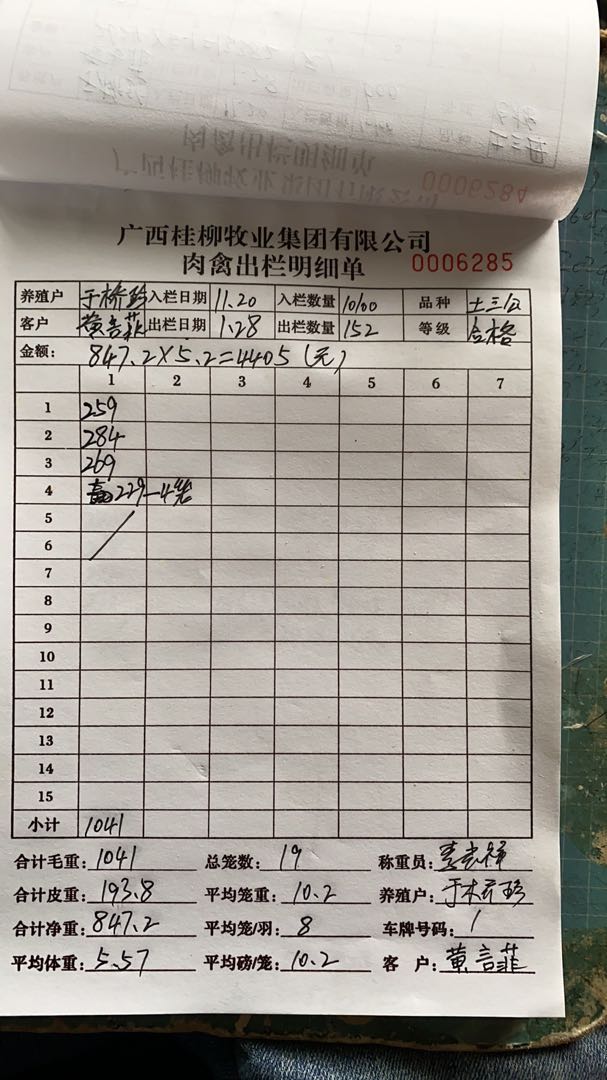 0006284
广西桂柳牧业集团有限公司
肉禽出栏明细单 0006285
养殖户 于桥珍 入栏日期 11.20 入栏数量 10100 品种 土三公
客户 黄言菲 出栏日期 1.28 出栏数量 152 等级 合格
金额: 847.2×5.2=4405(元)
1 2 3 4 5 6 7
1 259
2 284
3 269
4 229—4笼
5
6
7
8
9
10
11
12
13
14
15
小计 1041
合计毛重: 1041 总笼数: 19 称重员:
合计皮重: 193.8 平均笼重: 10.2 养殖户: 于桥珍
合计净重: 847.2 平均笼/羽: 8 车牌号码: /
平均体重: 5.57 平均磅/笼: 10.2 客户: 黄言菲